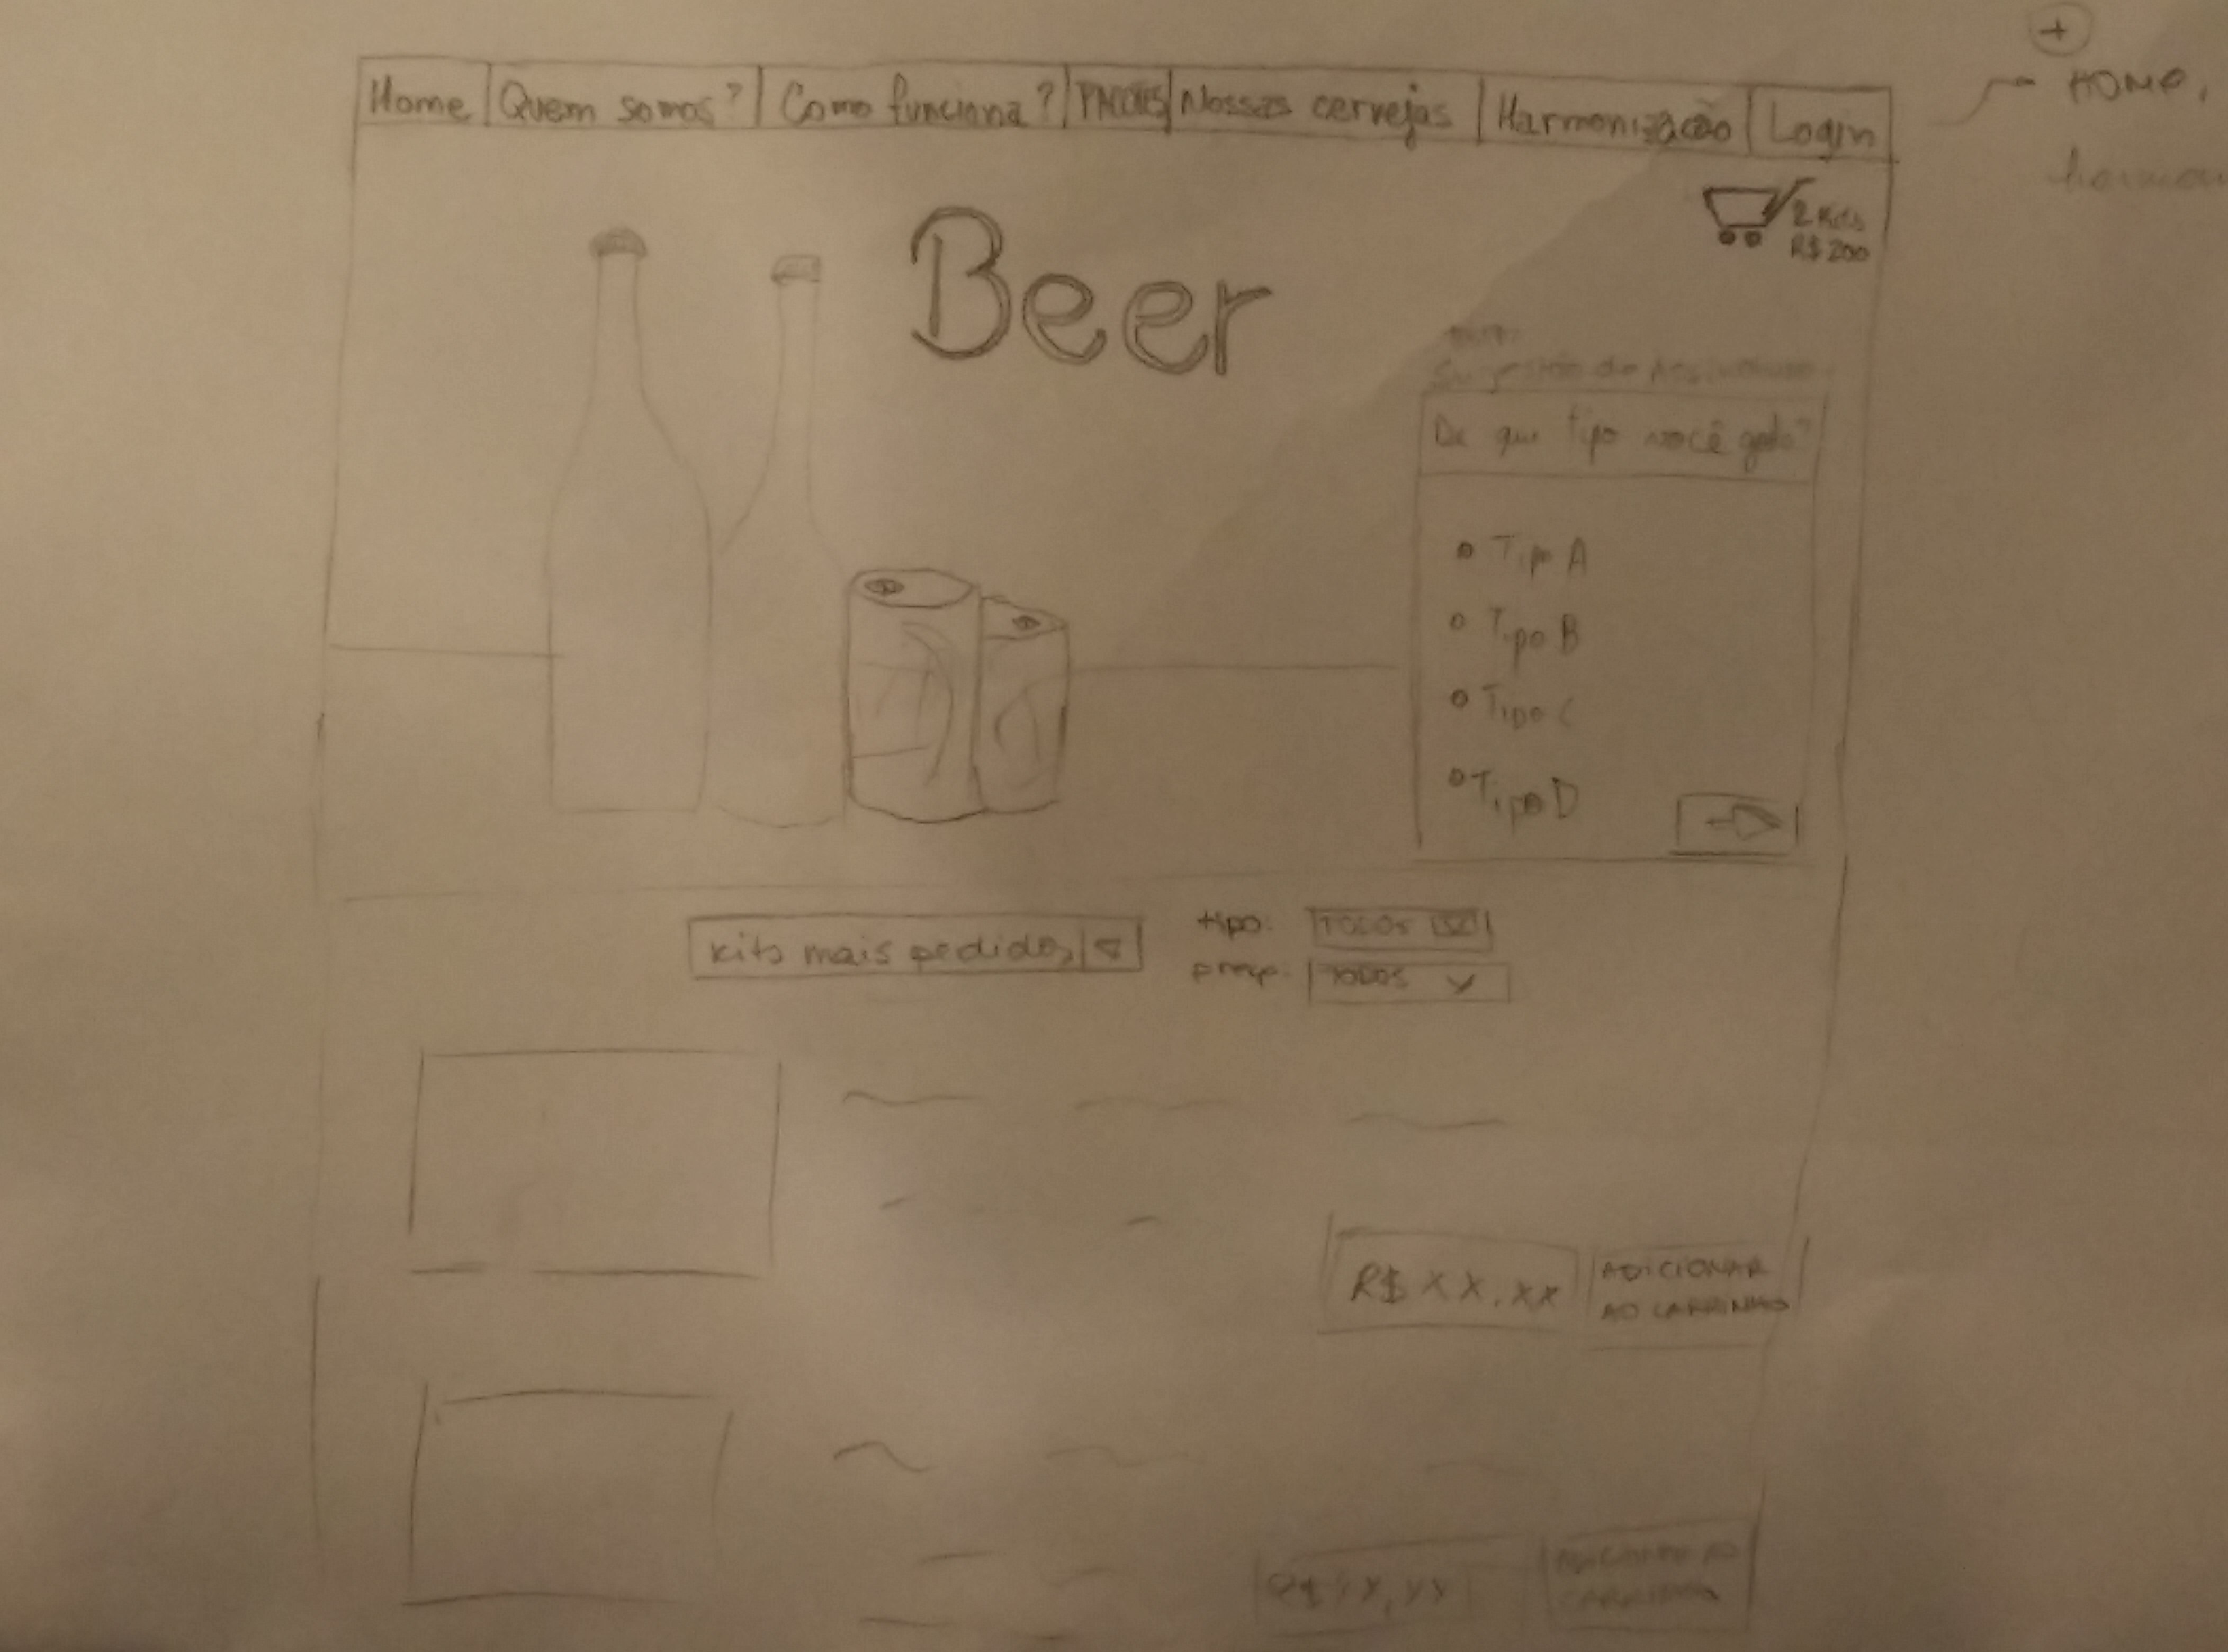 +
HOME,
Home Quem somos? Como funciona? PACOTES Nossas cervejas Harmonização Login
2 Kits
R$ 200
Beer
De que tipo você gosta?
Tipo A
Tipo B
Tipo C
Tipo D
kits mais pedidos
tipo: TODOS
preço: TODOS
R$ XX,XX
ADICIONAR
AO CARRINHO
R$ XX,XX
CARRINHO